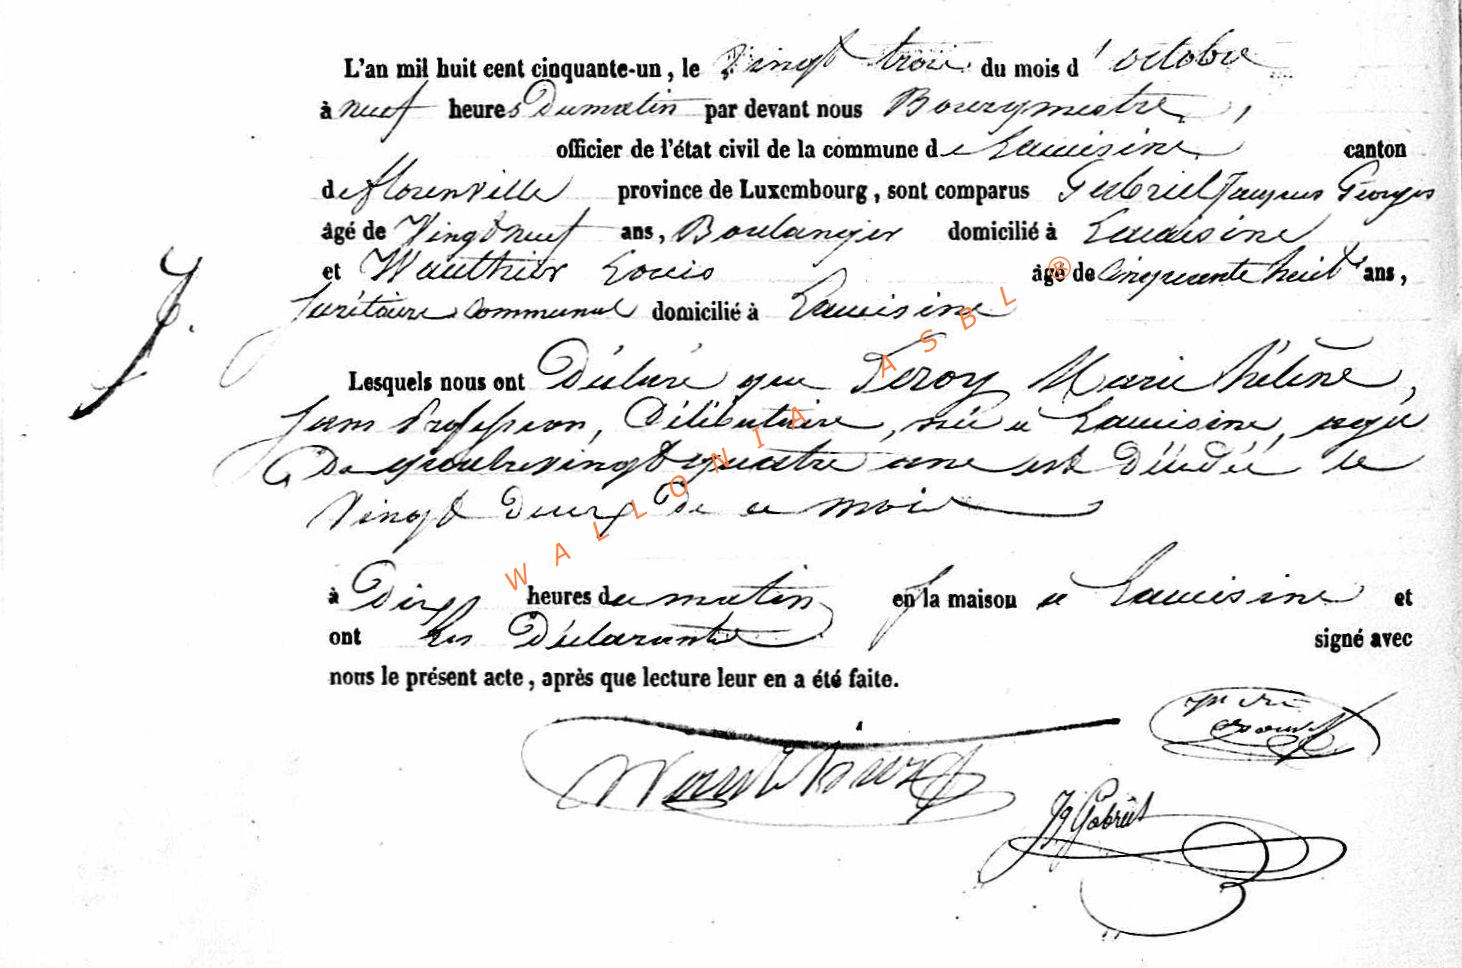 L'an mil huit cent cinquante-un, le Vingt trois du mois d'octobre
à neuf heures Dumatin par devant nous Bourgmestre,
officier de l'état civil de la commune de Lacuisine canton
de florenville province de Luxembourg, sont comparus Gabriel Jacques Georges
âgé de Vingt neuf ans, Boulanger domicilié à Lacuisine
et Wauthier Louis âgé de Cinquante huit ans,
Secrétaire Communal domicilié à Lacuisine
J.
Lesquels nous ont Déclaré que Leroy Marie hélène,
sans Profession, Célibataire, née à Lacuisine, agée
De quatrevingt quatre ans est Décédée le
Vingt Deux De ce mois
à Dix heures du matin en la maison à Lacuisine et
ont les Déclarants signé avec
nous le présent acte, après que lecture leur en a été faite.
Wauthier
JJ Gabriel
WALLONIA ASBL ®